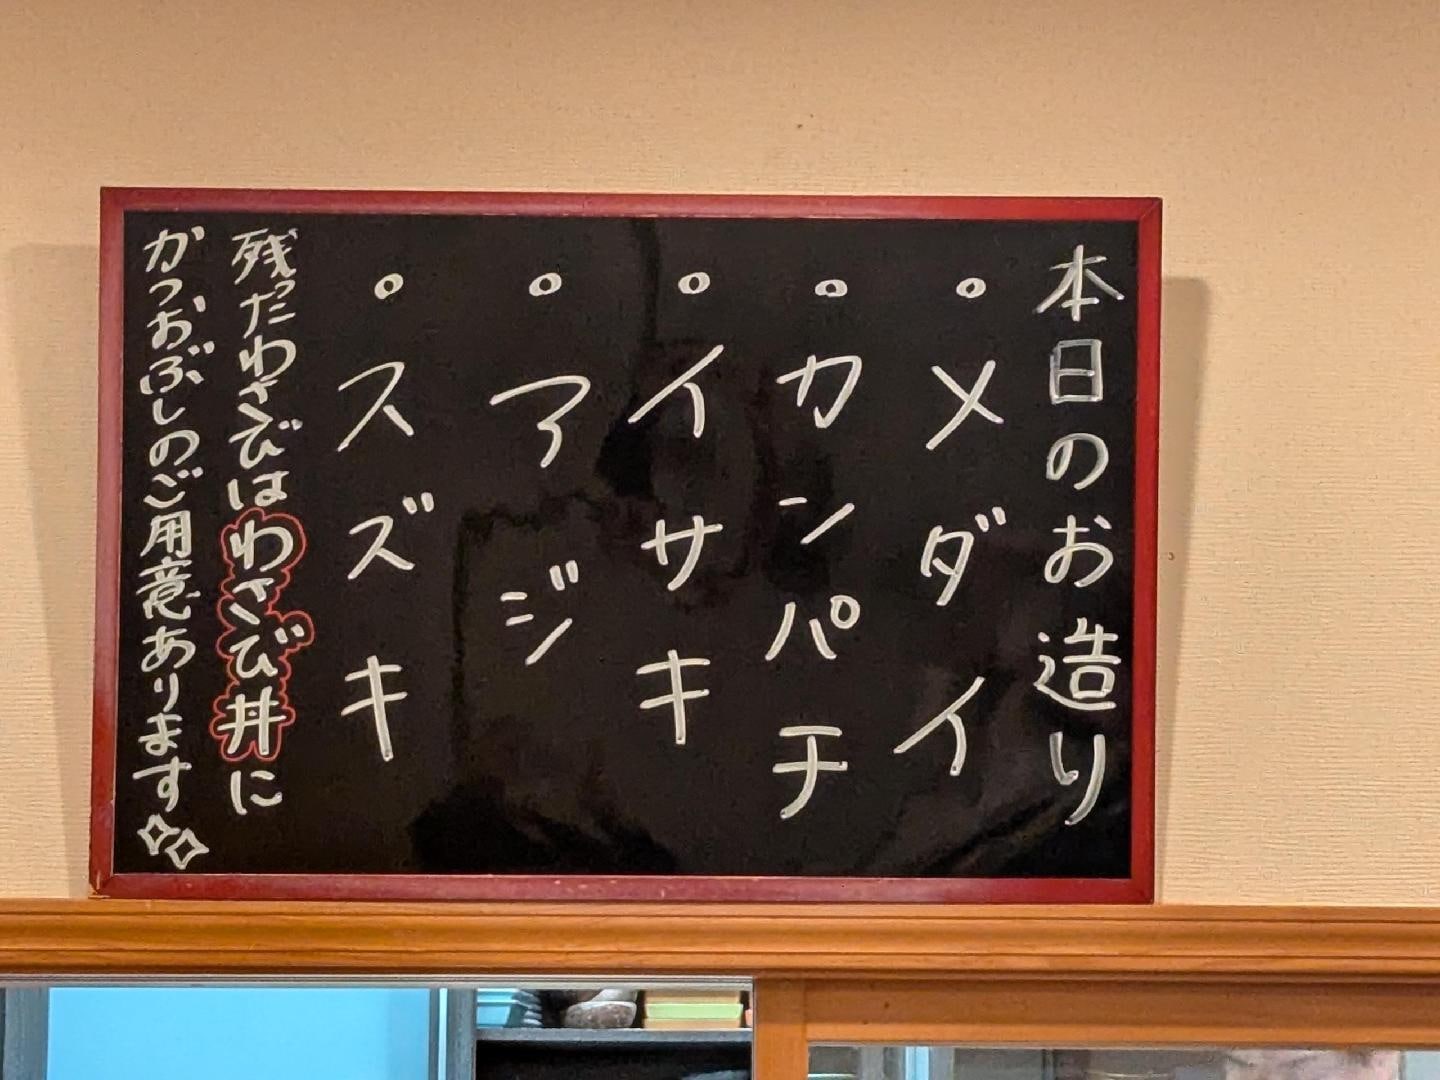 本日のお造り
。メダイ
。カンパチ
。イサキ
。アジ
。スズキ
残ったわさびはわさび丼に
かつおぶしのご用意あります